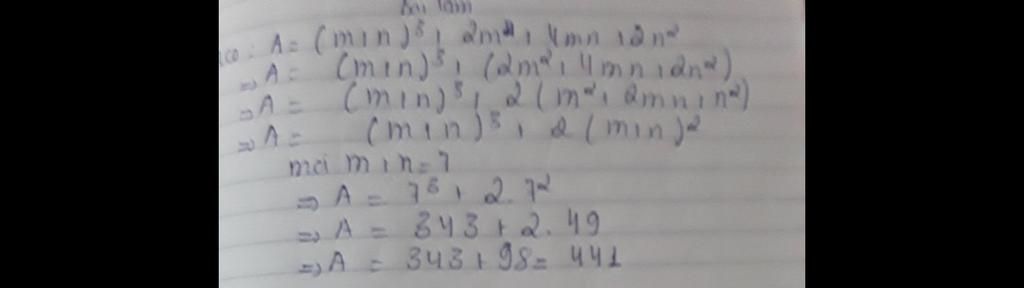 Bài làm
có: A = (m+n)³ + 2m² + 4mn + 2n²
⇒ A = (m+n)³ + (2m² + 4mn + 2n²)
⇒ A = (m+n)³ + 2(m² + 2mn + n²)
⇒ A = (m+n)³ + 2(m+n)²
mà m+n=7
⇒ A = 7³ + 2.7²
⇒ A = 343 + 2.49
⇒ A = 343 + 98 = 441